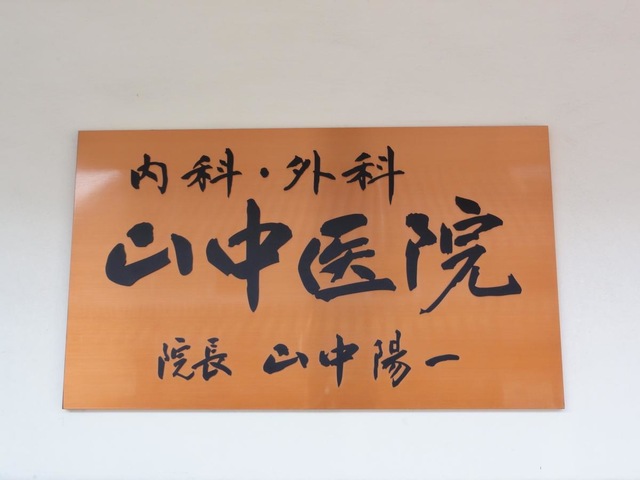 内科・外科
山中医院
院長 山中陽一